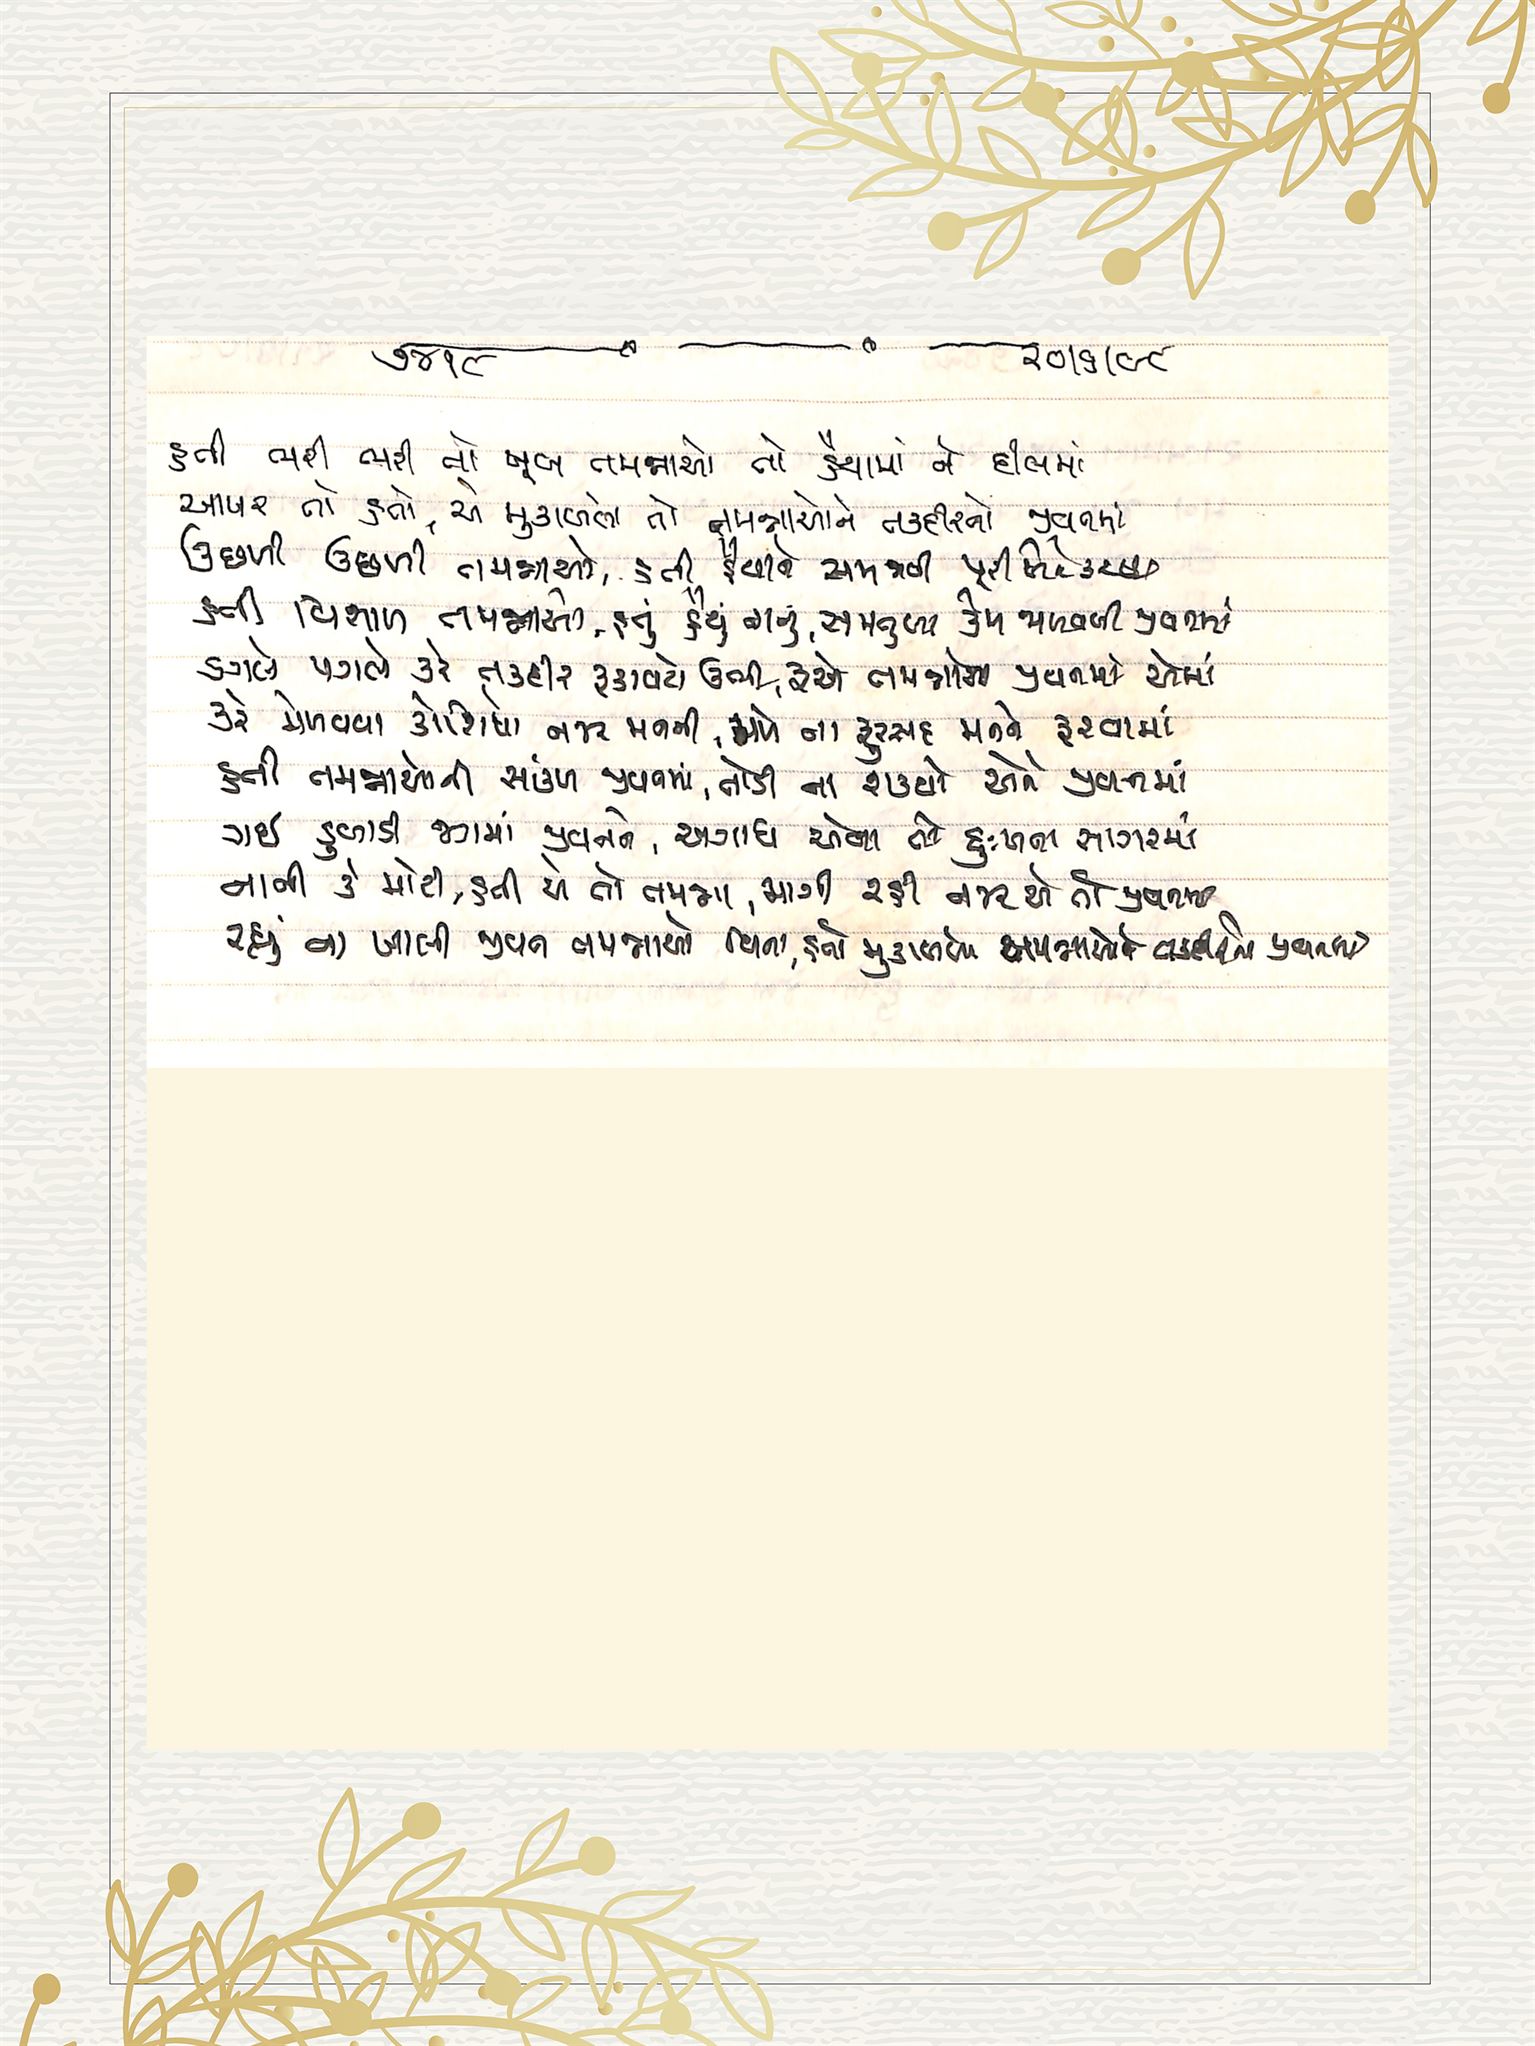 ૭૪૧૯ ૨૦/૬/૯૯
હતી ભરી ભરી તો ખૂબ તમન્નાઓ તો હૈયામાં ને દીલમાં
આખર તો હતો, એ મુકાબલો તો તમન્નાઓને તકદીરનો જીવનમાં
ઉછળી ઉછળી તમન્નાઓ, હતી હૈયાને સમજવી પૂરી
હતી વિશાળ તમન્નાઓ, હતું હૈયું નાનું, સમતુલા કેમ જાળવવી જીવનમાં
ડગલે પગલે કરે તકદીર રૂકાવટો ઉભી, એ જીવનમાં એમાં
કરે મેળવવા કોશિશો નજર મનની, મળે ના ફુરસદ મનને ફરવામાં
હતી તમન્નાઓની સાંકળ જીવનમાં, તોડી ના શક્યો એને જીવનમાં
ગઈ ડુબાડી જગમાં જીવનને, અગાધ એવા તો દુઃખના સાગરમાં
નાની કે મોટી, હતી એ તો તમન્ના, માગી રહી નજર એ તો જીવનમાં
રહ્યું ના ખાલી જીવન તમન્નાઓ વિના, હતો મુકાબલો તમન્નાઓને તકદીરનો જીવનમાં